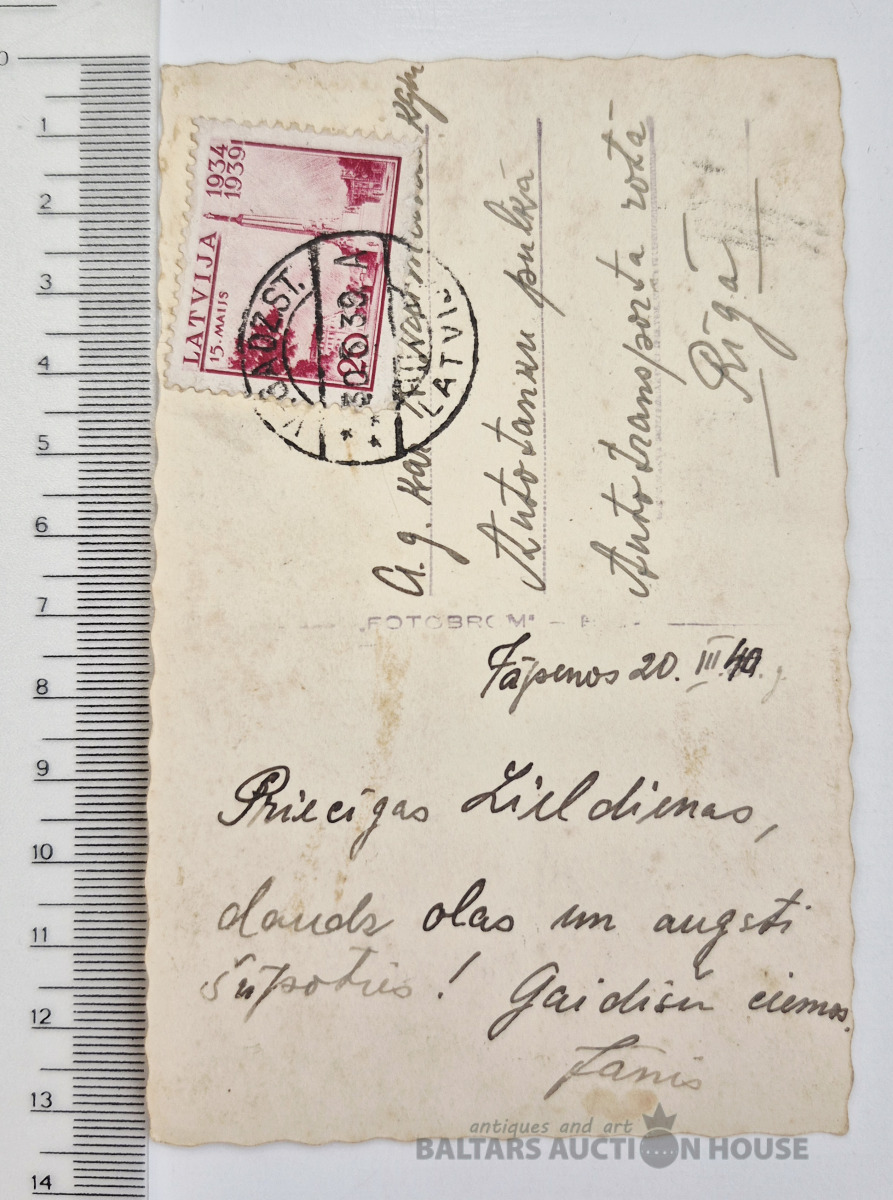 LATVIJA
1934
1939
15. MAIJS
20
DZ.ST.
39. N
LATVIJ
A. g.
Autotanku pulkā
Autotransporta rotā
Rīgā
FOTOBROM
20. III. 40. g.
Priecīgas Lieldienas,
daudz olas un augsti
šūpoties! Gaidīsu ciemos.
Jānis
antiques and art
BALTARS AUCTION HOUSE
0
1
2
3
4
5
6
7
8
9
10
11
12
13
14